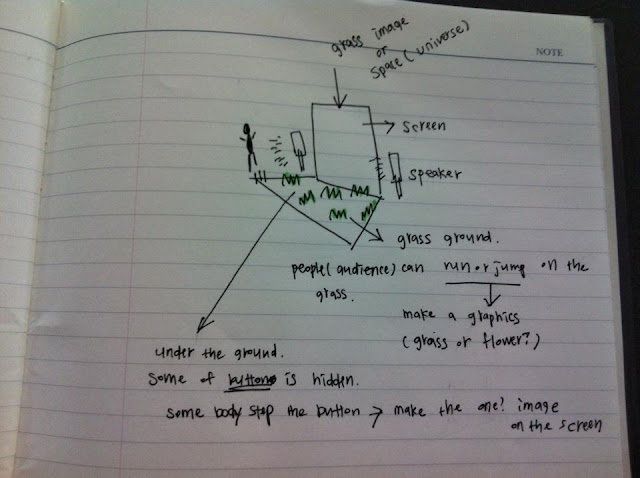 NOTE
grass image
or
space (universe)
screen
speaker
grass ground.
people (audience) can run or jump on the
grass.
make a graphics
(grass or flower?)
under the ground.
some of button is hidden.
some body step the button → make the one? image
on the screen